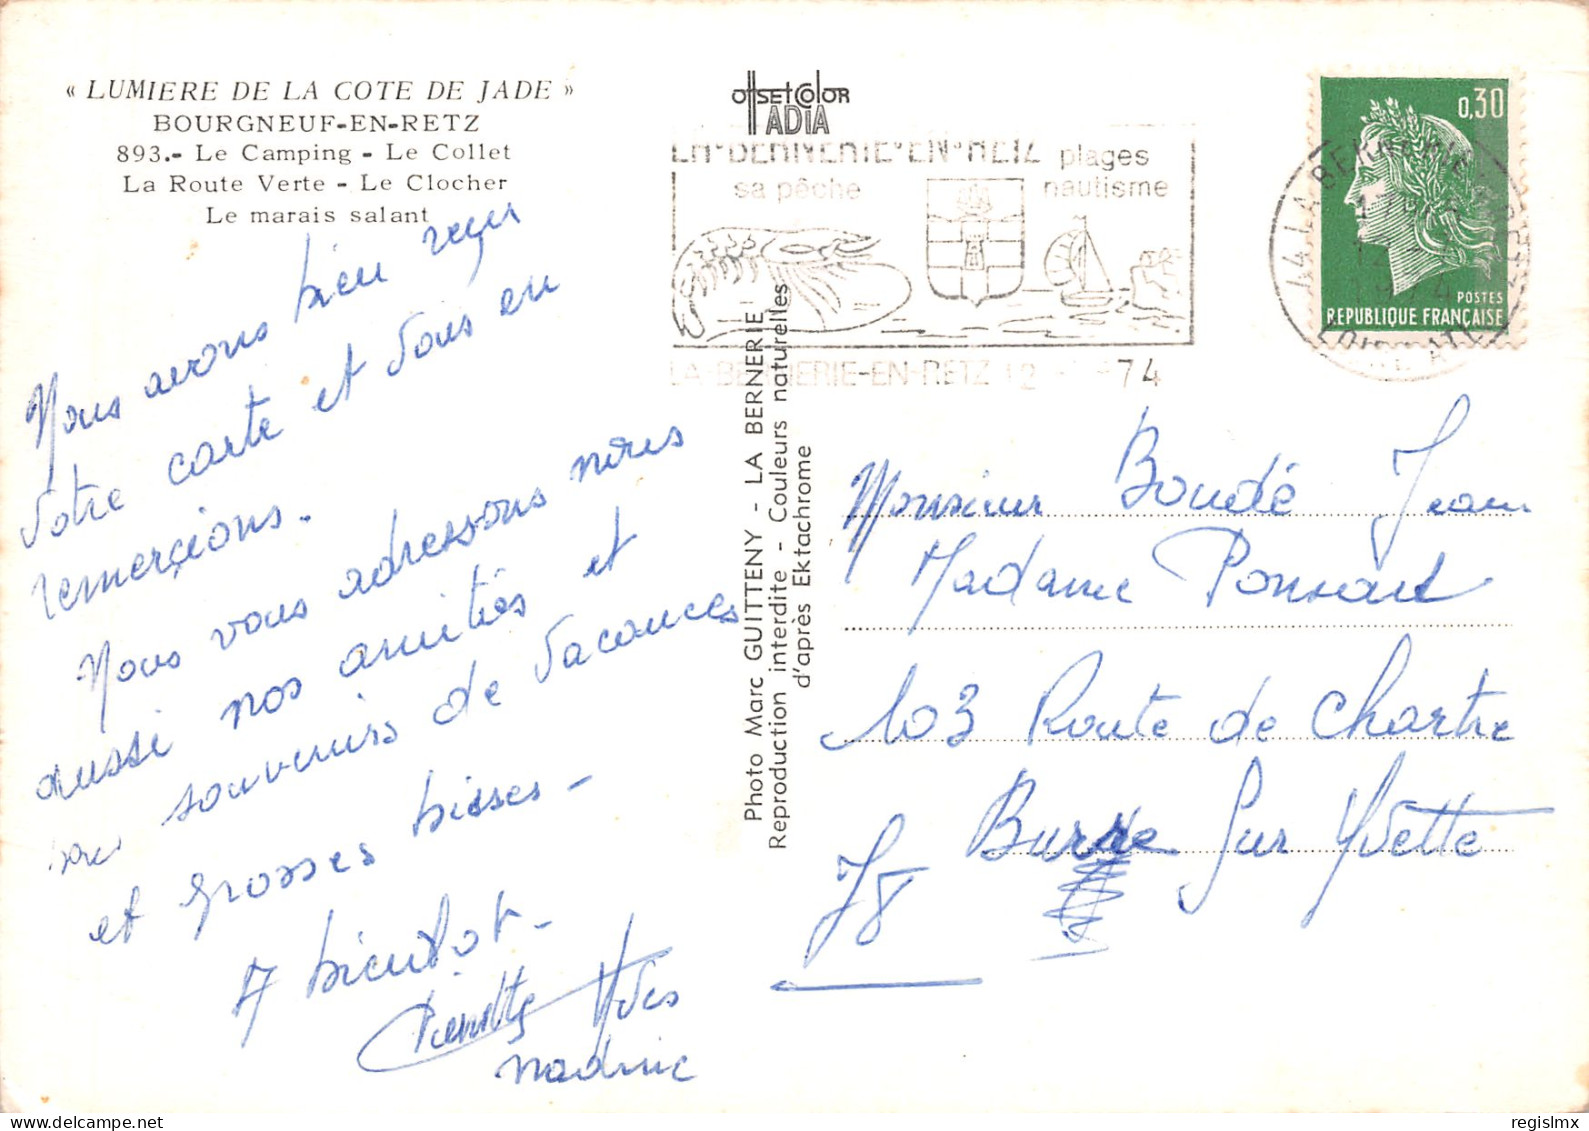 « LUMIERE DE LA COTE DE JADE »
BOURGNEUF-EN-RETZ
893.- Le Camping - Le Collet
La Route Verte - Le Clocher
Le marais salant
Nous avons bien reçu
votre carte et vous en
remerçions.
Nous vous adressons
aussi nos amitiés et
souvenirs de vacances
et grosses bisses -
A bientot -
Pierrette Yves
nadine
OffSETCOlOR
IADIA
LA-BERNERIE-EN-RETZ
plages
sa pêche
nautisme
LA-BERNERIE-EN-RETZ 12 74
Photo Marc GUITTENY - LA BERNERIE
Reproduction interdite - Couleurs naturelles
d'après Ektachrome
0,30
POSTES
REPUBLIQUE FRANÇAISE
44 LA BERNERIE EN RETZ
12
1974
LOIRE ATL
Monsieur Boudé Jean
Madame Ponsard
103 Route de Chartre
Bures Sur Yvette
78
regislmx